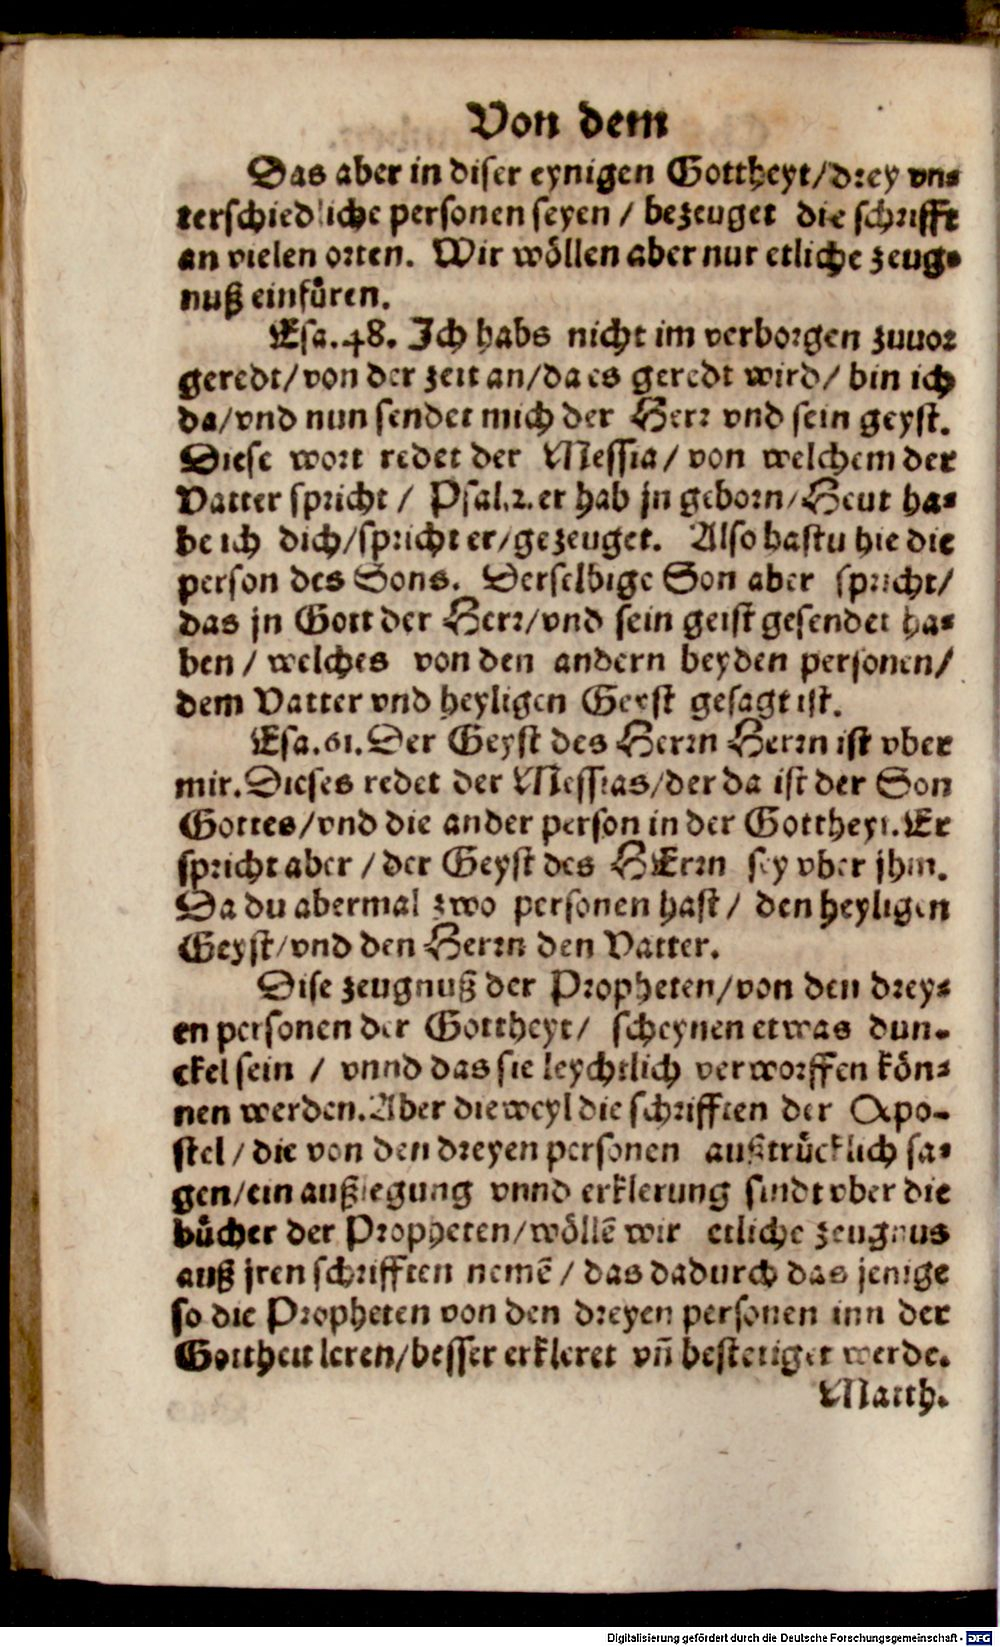 Von dem
Das aber in diser eynigen Gottheyt/drey vn-
terschiedliche personen seyen / bezeuget die schrifft
an vielen orten. Wir wöllen aber nur etliche zeug-
nuß einfüren.
Esa.48. Ich habs nicht im verborgen zuuor
geredt/von der zeit an/da es geredt wird/ bin ich
da/vnd nun sendet mich der Herr vnd sein geyst.
Diese wort redet der Messia/ von welchem der
Vatter spricht / Psal.2. er hab jn geborn/Heut ha-
be ich dich/spricht er/gezeuget. Also hastu hie die
person des Sons. Derselbige Son aber spricht/
das jn Gott der Herr/vnd sein geist gesendet ha-
ben / welches von den andern beyden personen/
dem Vatter vnd heyligen Geyst gesagt ist.
Esa.61. Der Geyst des Herrn Herrn ist vber
mir. Dieses redet der Messias/der da ist der Son
Gottes/vnd die ander person in der Gottheyt. Er
spricht aber / der Geyst des HErrn sey vber jhm.
Da du abermal zwo personen hast / den heyligen
Geyst/vnd den Herrn den Vatter.
Dise zeugnuß der Propheten/von den drey-
en personen der Gottheyt/ scheynen etwas dun-
ckel sein / vnnd das sie leychtlich verworffen kön-
nen werden. Aber dieweyl die schrifften der Apo-
stel / die von den dreyen personen außtrücklich sa-
gen/ein außlegung vnnd erklerung sindt vber die
bücher der Propheten/wöllē wir etliche zeugnus
auß jren schrifften nemē / das dadurch das jenige
so die Propheten von den dreyen personen inn der
Gottheit leren/besser erkleret vn̄ bestetiget werde.
Matth.
Digitalisierung gefördert durch die Deutsche Forschungsgemeinschaft - DFG